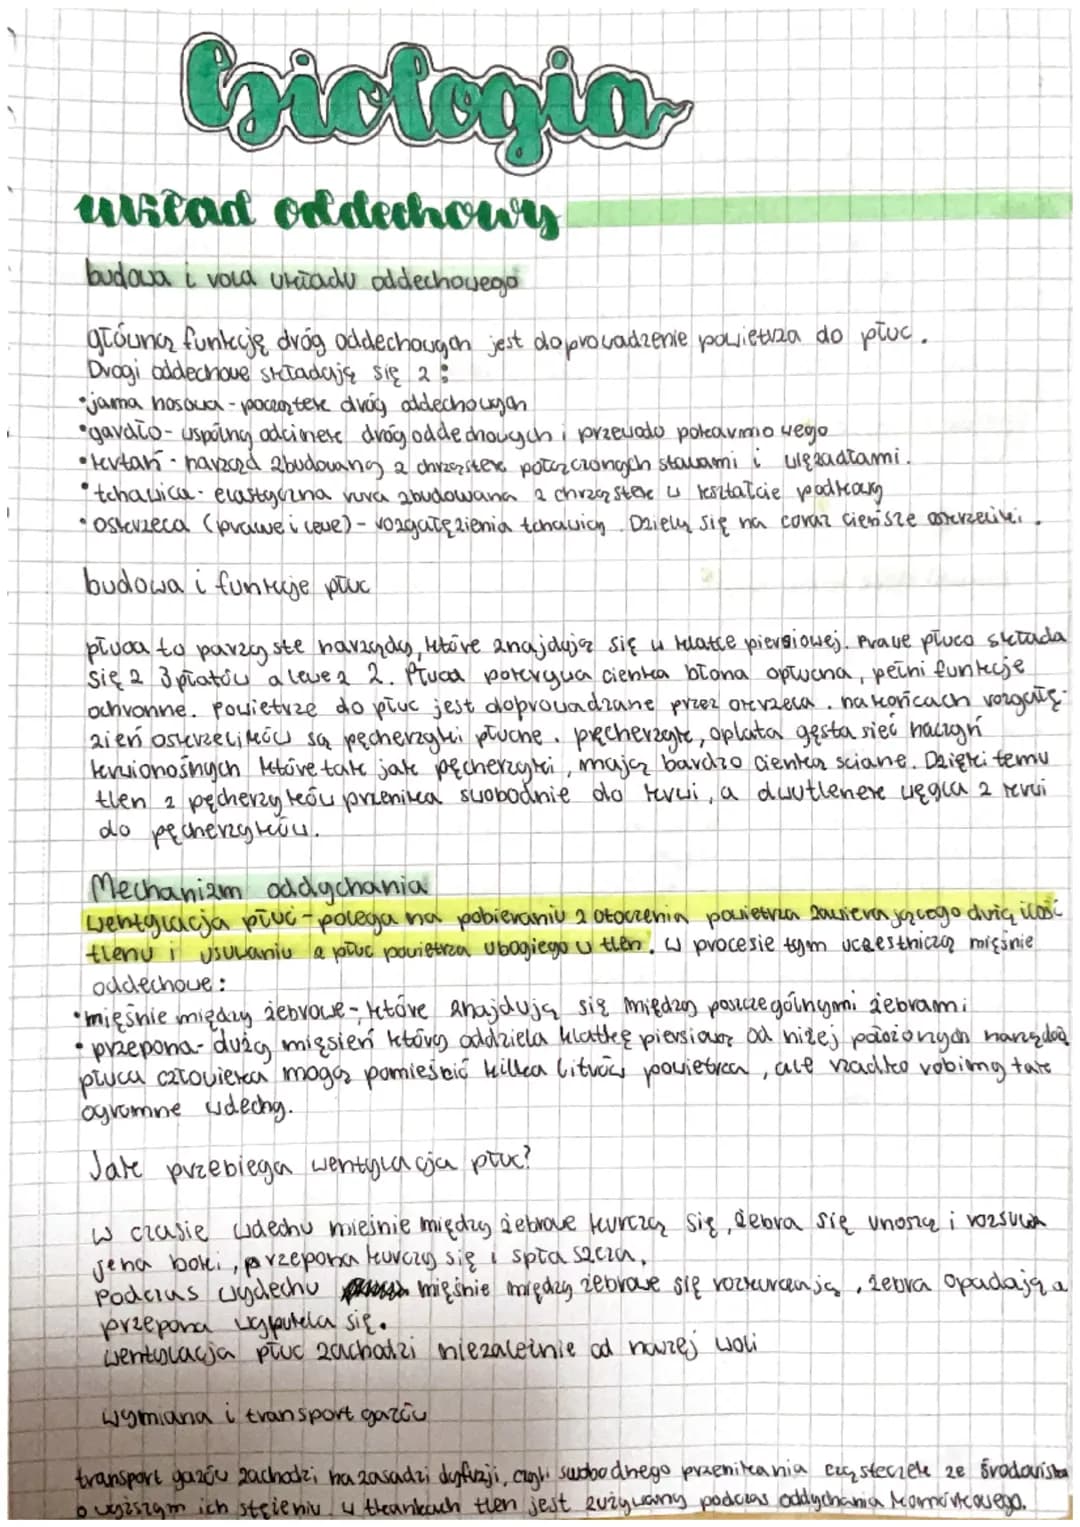 biologia
układ oddechowy
budowa i rola układu oddechowego
główną funkcją dróg oddechowych jest doprowadzenie powietrza do płuc.
Drogi oddechowe składają się z:
•jama nosowa - początek dróg oddechowych
•gardło - wspólny odcinek dróg oddechowych i przewodu pokarmowego
•krtań - narząd zbudowany z chrząstek połączonych stawami i więzadłami.
•tchawica - elastyczna rura zbudowana z chrząstek w kształcie podkowy
•oskrzela (prawe i lewe) - rozgałęzienia tchawicy. Dzielą się na coraz cieńsze oskrzeliki.
budowa i funkcje płuc
płuca to parzyste narządy, które znajdują się w klatce piersiowej. Prawe płuco składa
się z 3 płatów a lewe z 2. Płuca pokrywa cienka błona opłucna, pełni funkcje
ochronne. Powietrze do płuc jest doprowadzane przez okrzela. na końcach rozgałę-
zień oskrzelików są pęcherzyki płucne. pęcherzyk, oplata gęsta sieć naczyń
krwionośnych które tak jak pęcherzyki, mają bardzo cienką sciane. Dzięki temu
tlen z pęcherzyków przenika swobodnie do krwi, a dwutlenek węgla z krwi
do pęcherzyków.
Mechanizm oddychania
wentylacja płuc - polega na pobieraniu z otoczenia powietrza zawierającego dużą ilość
tlenu i usuwaniu z płuc powietrza ubogiego w tlen. W procesie tym uczestniczą mięśnie
oddechowe:
•mięśnie między żebrowe - które znajdują się między poszczególnymi żebrami
•przepona - duży mięsień który oddziela klatkę piersiową od niżej położonych narządów
płuca człowieka mogą pomieścić kilka litrów powietrza, ale rzadko robimy tak
ogromne wdechy.
Jak przebiega wentylacja płuc?
W czasie wdechu mieśnie między żebrowe kurczą się, żebra się unoszą i rozsuwa
ją na boki, przepona kurczy się i spłaszcza.
Podczas wydechu mięśnie między żebrowe się rozkurczają, żebra opadają a
przepona wypukla się.
wentylacja płuc zachodzi niezależnie od naszej woli
wymiana i transport gazów
transport gazów zachodzi na zasadzi dyfuzji, czyli swobodnego przenikania cząsteczek ze środowiska
o wyższym ich stężeniu. w tkankach tlen jest zużywany podczas oddychania komórkowego.